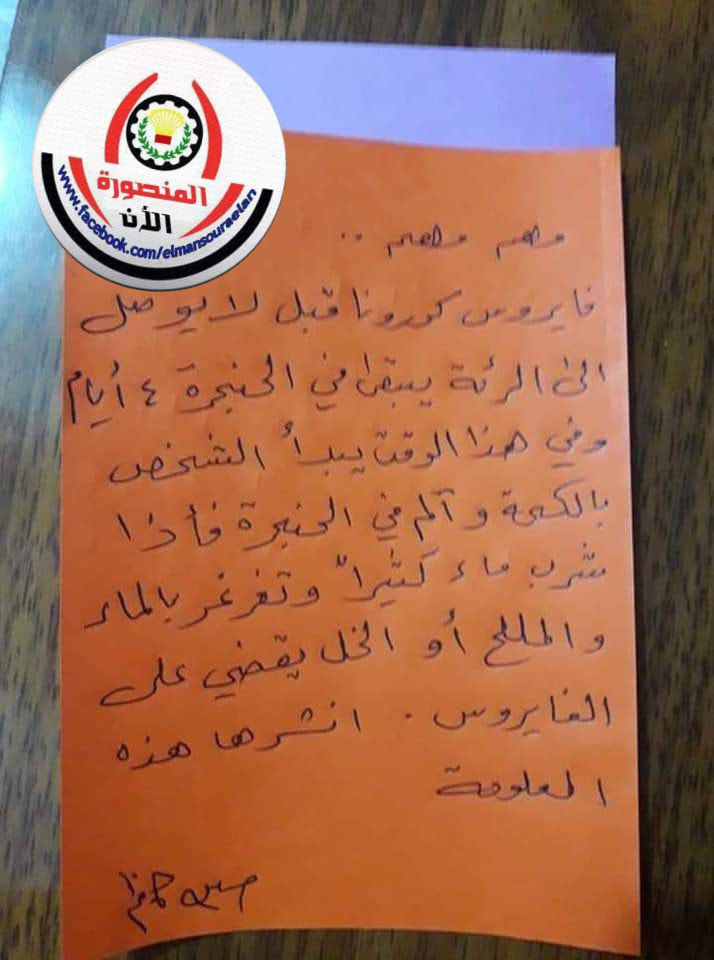 المنصورة
الأن
www.facebook.com/elmansouraelan
مهم مهم ..
فايروس كورونا قبل لا يوصل
الى الرئة يبقى في الحنجرة ٤ أيام
وفي هذا الوقت يبدأ الشخص
بالكحة وآلم في الحنجرة فأذا
شرب ماء كثيراً وتغرغر بالماء
والملح أو الخل يقضي على
الفايروس . انشرها هذه
المعلومة